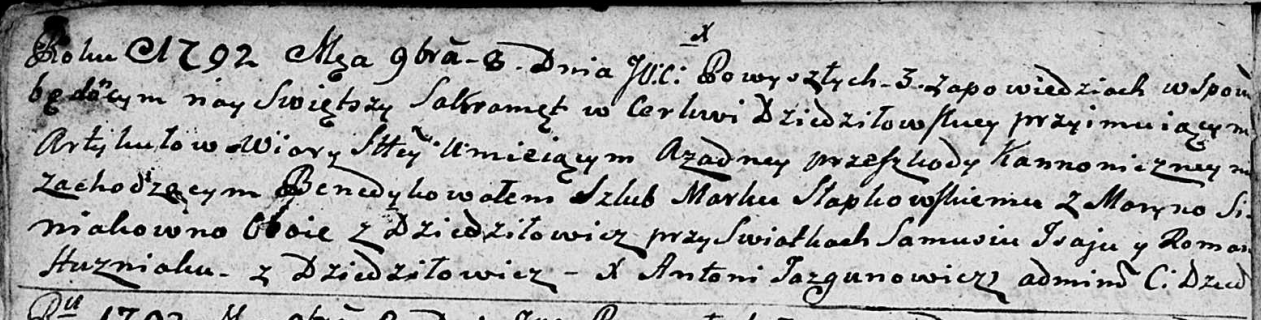 X
Roku 1792 Mca 9bra 8 Dnia Powyszłych 3 Zapowiedziach w Spow
będącym nay Swiętszy Sakramęt w Cerkwi Dziedziłowskiey przyimuiącym
Artykułow Wiary Sttey Umieiącym A zadney przeszkody Kannoniczney
zachodzącym Benedykowałem Szlub Marku Słapkowskiemu z Maryno Si
niakowno Oboie z Dziedziłowicz przy Swiatkach Samusiu Isaju y Roman
Huzniaku - z Dziedziłowicz - X Antoni Jazgunowicz admind C: Dzied